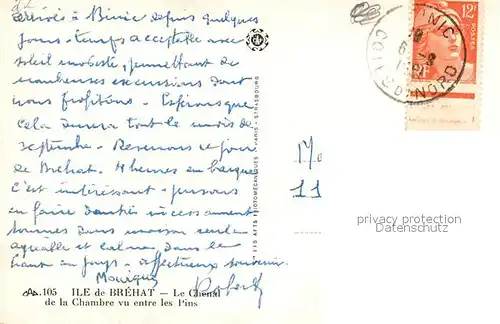 arrivés à Binic depuis quelques
jours - temps acceptable avec
soleil modeste, permettant de
nombreuses excursions dont
nous profitons - Espérons que
cela durera tout le mois de
septembre. Revenons ce jour
de Bréhat. 4 heures en barque
c'est intéressant - pensons
en faire d'autres incessamment
sommes dans maison seule
et calme, dans le
haut du pays - affectueux souvenir.
Monique Robert
105 ILE de BRÉHAT — Le Chenal
de la Chambre vu entre les Pins
LES ARTS PHOTOMÉCANIQUES - PARIS - STRASBOURG
12F
BINIC
COTES DU NORD
170
11
privacy protection
Datenschutz